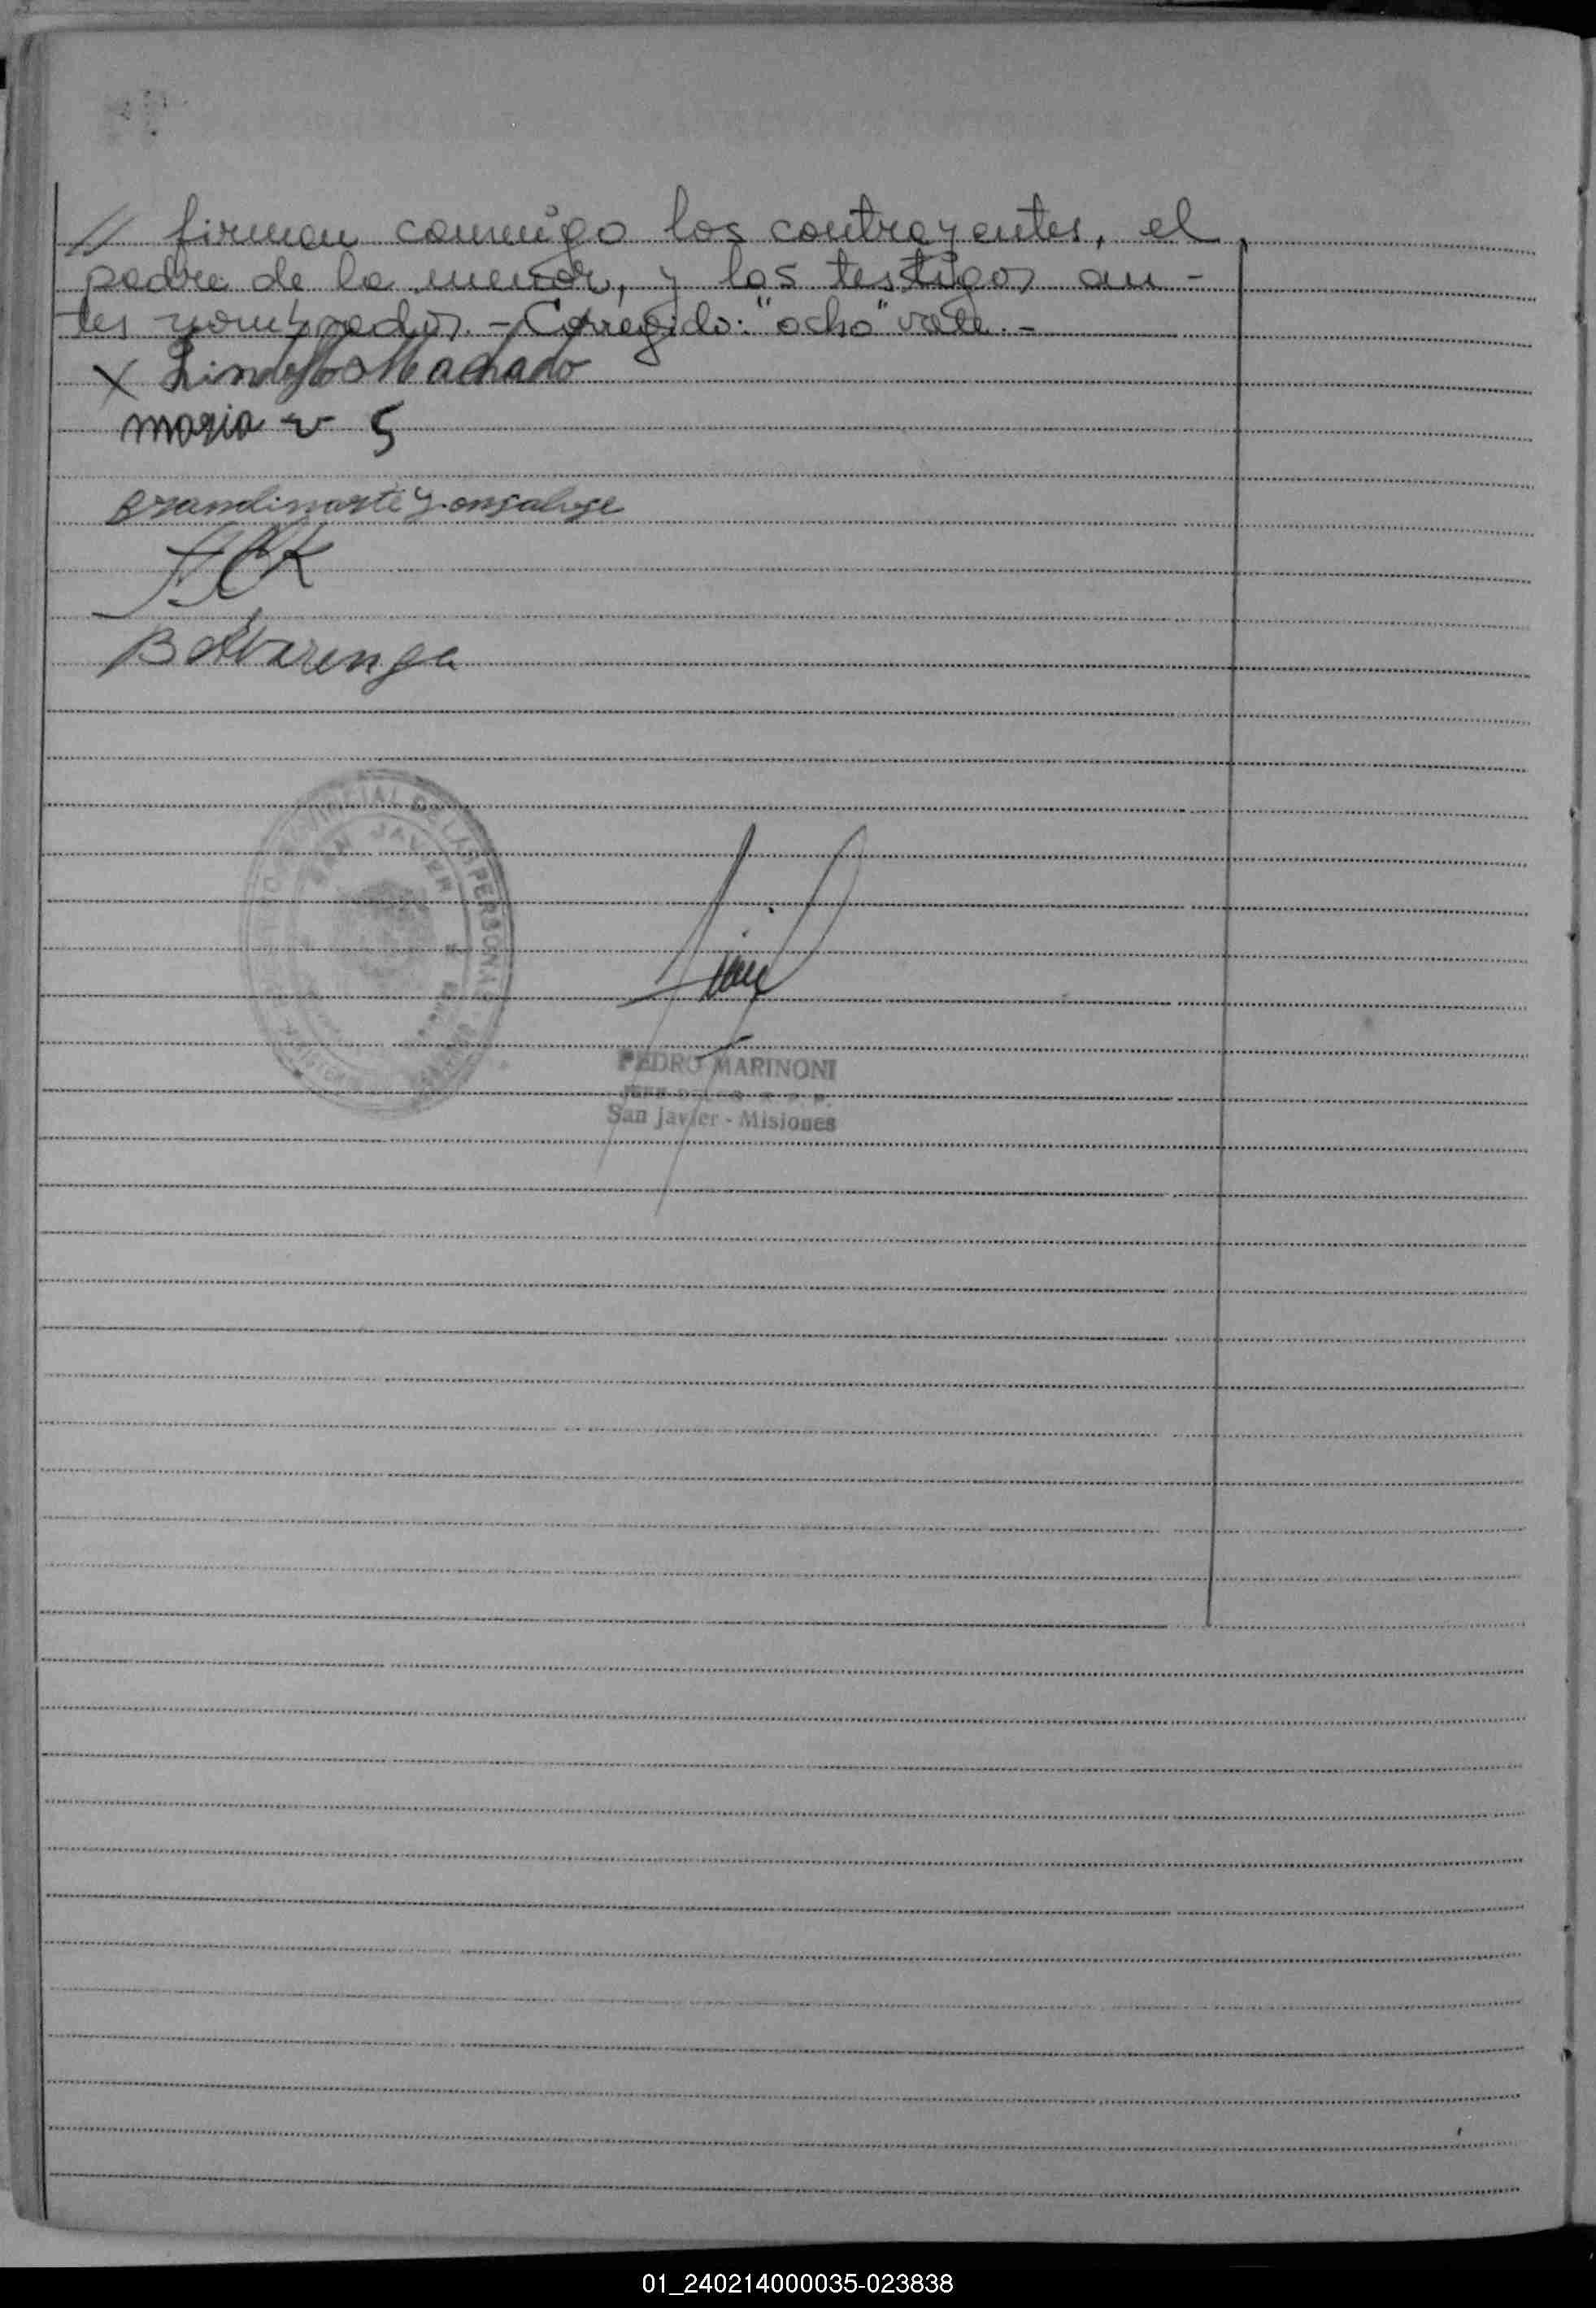 // firman conmigo los contrayentes, el
padre de la menor, y los testigos an-
tes nombrados. - Corregido: "ocho" vale. -
X Lindolfo Machado
maria v S
Brandimarte gonsalvse
B Alvarenga
PROVINCIAL DE LAS PERSONAS
SAN JAVIER
PEDRO MARINONI
San Javier - Misiones
01_240214000035-023838